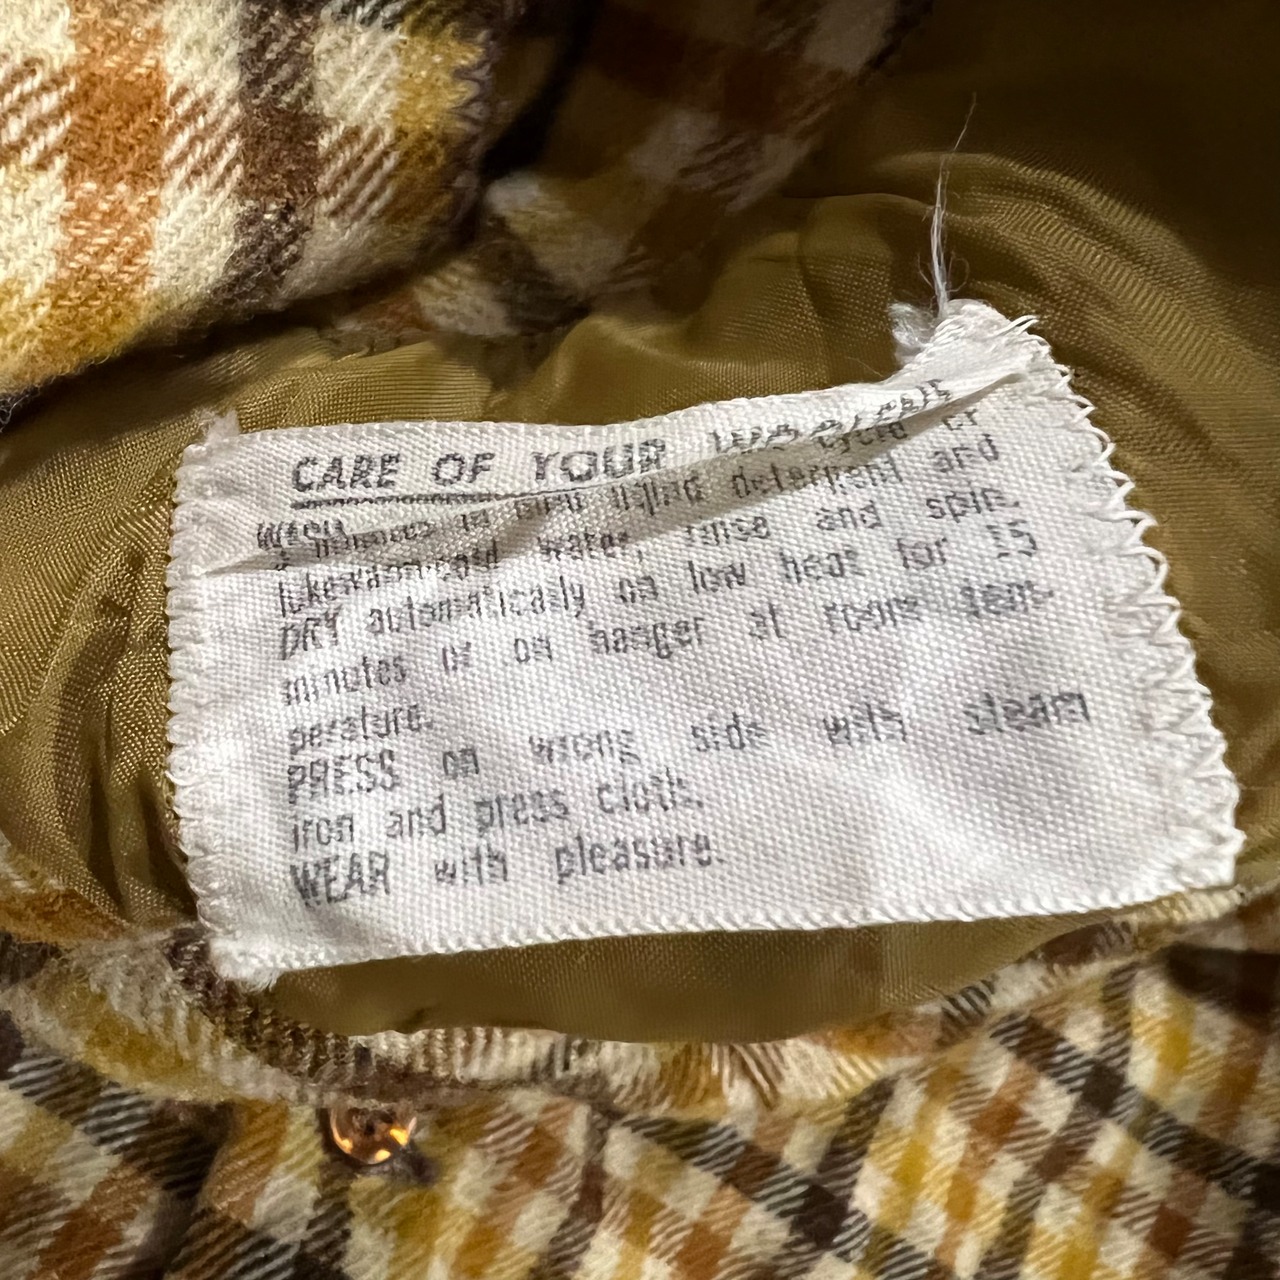 CARE OF YOUR
WASH cycle or
minutes in liquid detergent and
lukewarm-cold water, rinse and spin.
DRY automatically on low heat for 15
minutes or on hanger at room tem-
perature.
PRESS on wrong side with steam
iron and press cloth.
WEAR with pleasure.